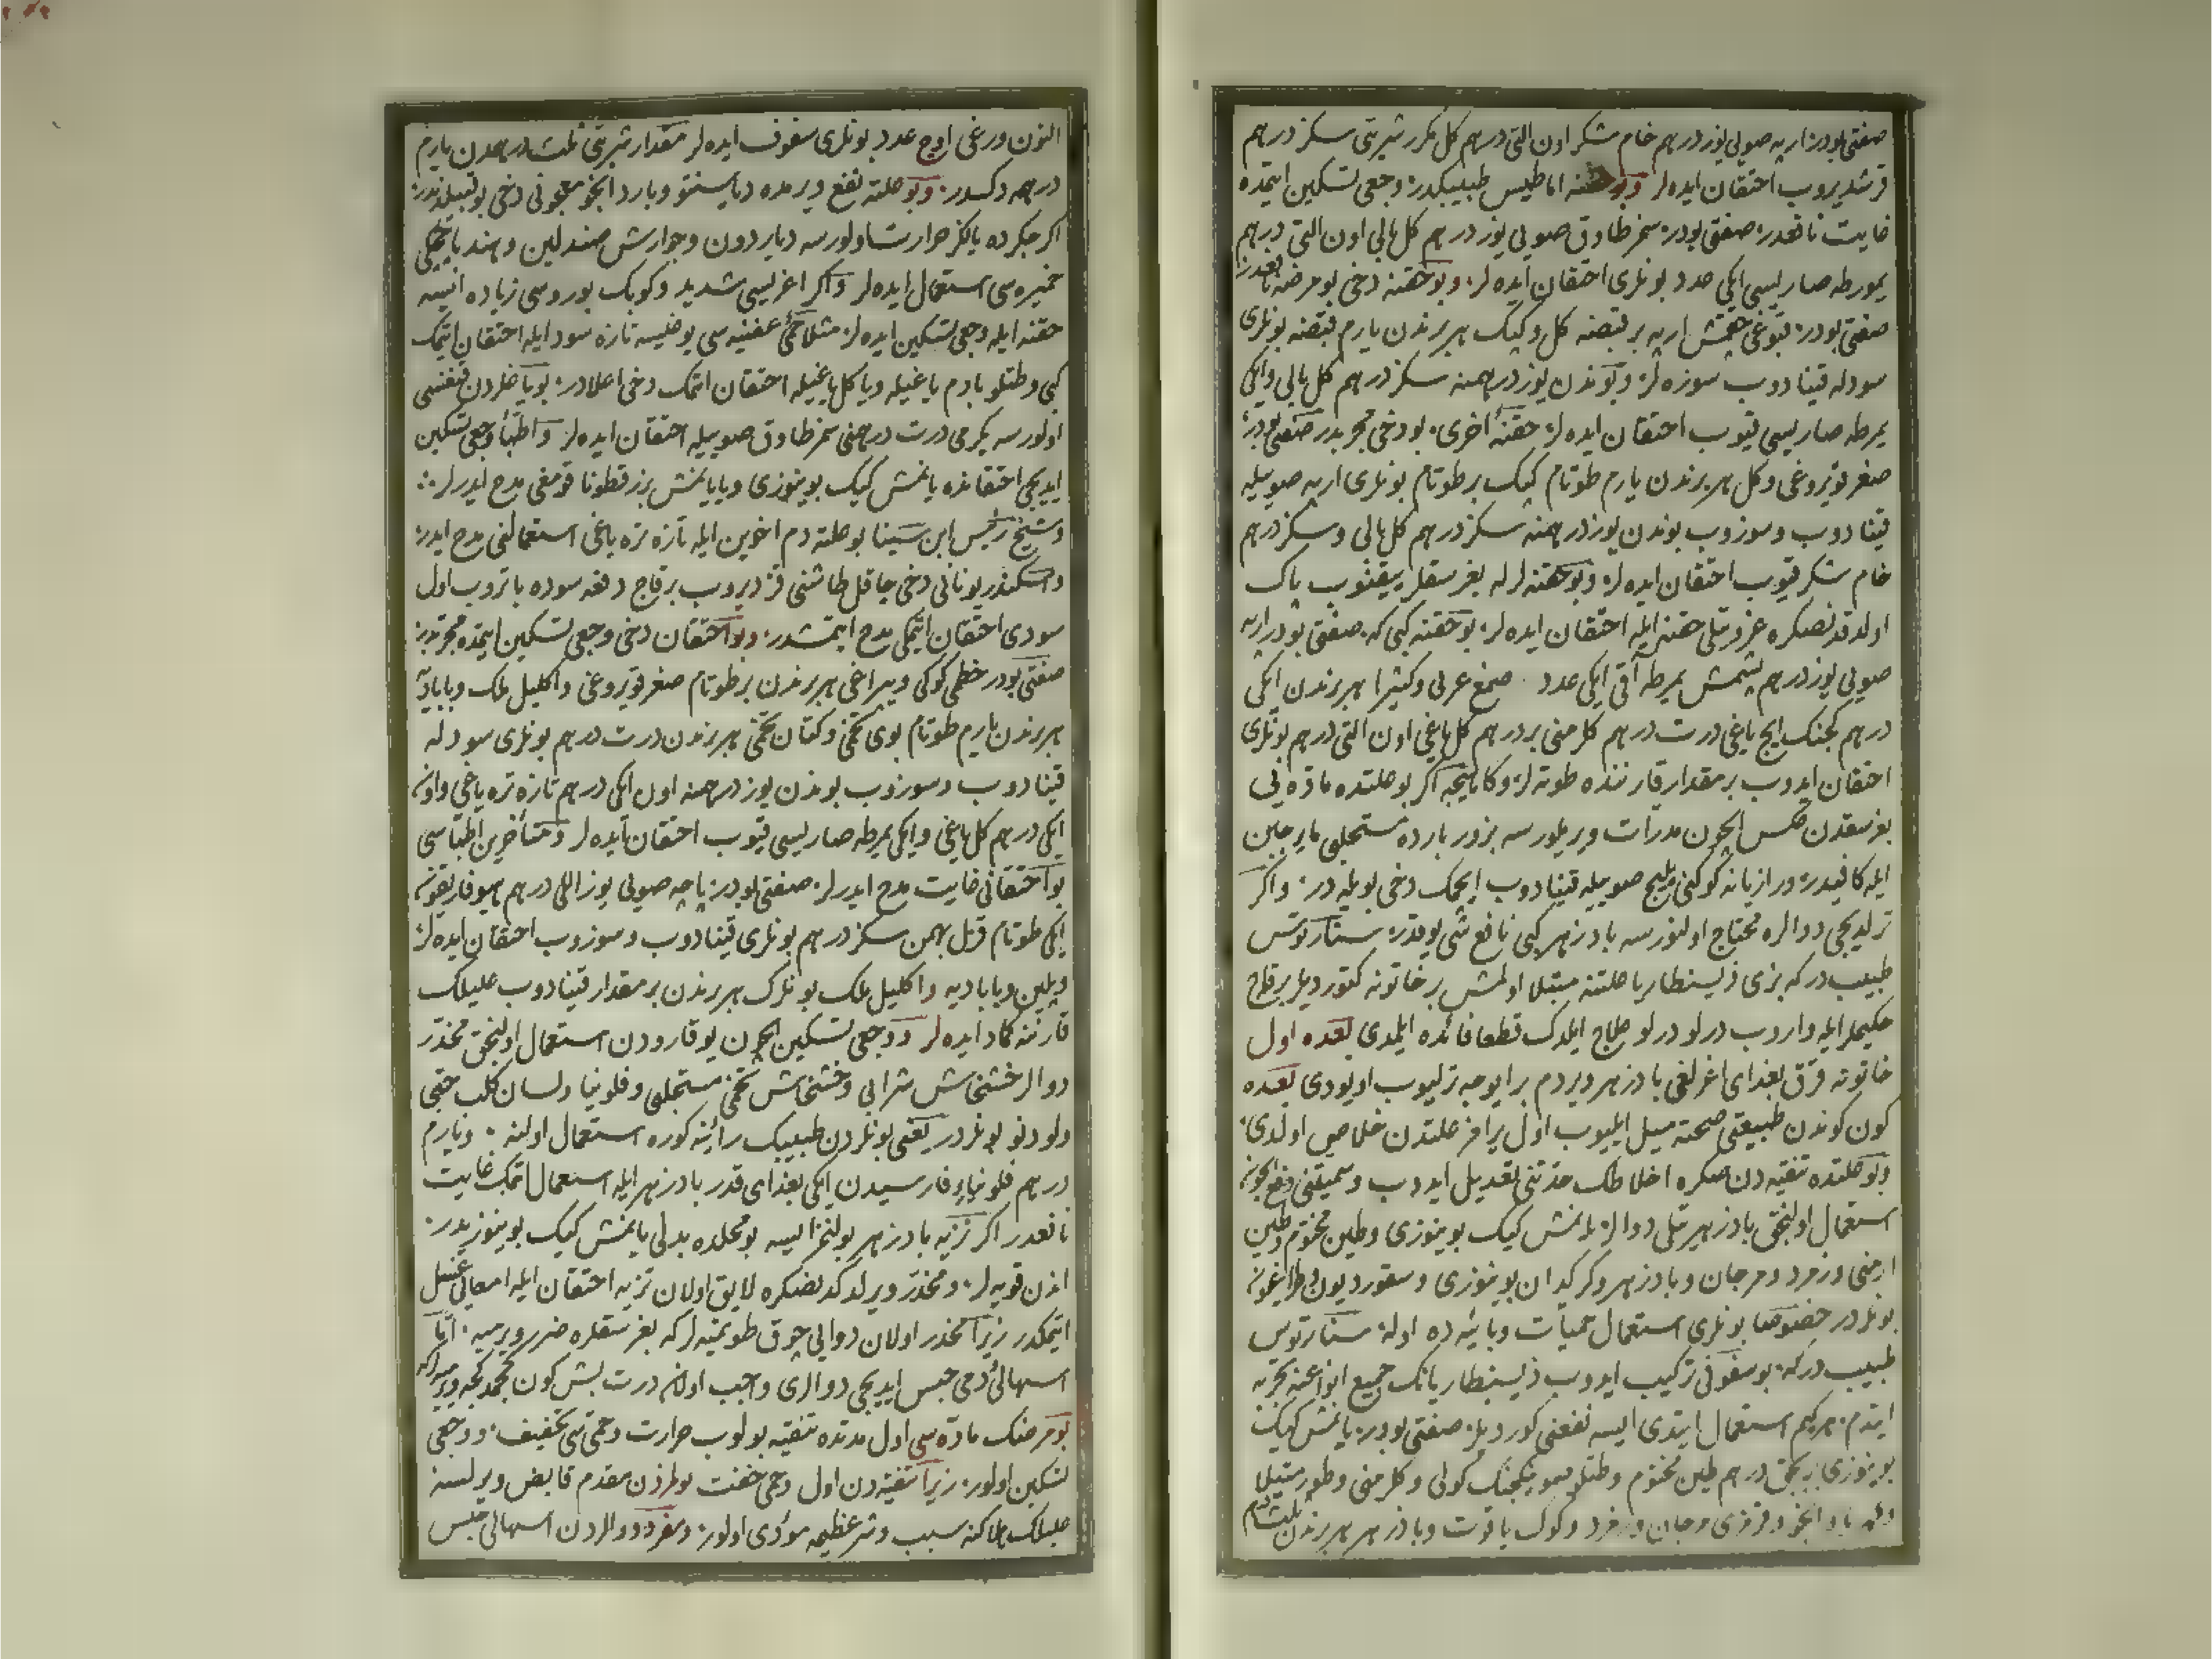 صفتی بودر اربه صویی یوز درهم خام شکر اون التی درهم کل مکرر شربتی سکز درهم
قرشدیروب احتقان ایده‌لر وبو حقنه اماطیس طبیبکدر وجعی تسکین ایتمده
غایت نافعدر صفتی بودر سنمر طاوق صویی یوز درهم کل یاغی اون التی درهم
یمورطه صاریسی ایکی عدد بونلری احتقان ایده‌لر وبو حقنه دخی بو مرضه نافعدر
صفتی بودر قبوغی چقمش اربه بر قبضه کل وکپک هر برندن یارم قبضه بونلری
سودله قینادوب سوزه‌لر وبوندن یوز درهمنه سکز درهم کل یاغی وایکی
یمرطه صاریسی قیوب احتقان ایده‌لر حقنهٔ اخری بو دخی مجربدر صفتی بودر
صغر قویروغی وکل هر برندن یارم طوتام کپک بر طوتام بونلری اربه صوییله
قینادوب وسوزوب بوندن یوز درهمنه سکز درهم کل یاغی وسکز درهم
خام شکر قیوب احتقان ایده‌لر وبو حقنه‌لرله بغرسقلر ییقنوب پاک
اولدقدنصکره غرویتلی حقنه ایله احتقان ایده‌لر بو حقنه کبی که صفتی بودر اربه
صویی یوز درهم پشمش یمرطه آقی ایکی عدد صمغ عربی وکثیرا هر برندن ایکی
درهم کچنک ایچ یاغی درت درهم کل ارمنی بر درهم کل یاغی اون التی درهم بونلری
احتقان ایدوب بر مقدار قارننده طوته‌لر اکر بو علتده ماده‌یی
بغرسقدن عکس ایچون مدرات ویریلورسه بزور بارده مستحلبی
ایله کافیدر ورازیانه کوکنی صوییله قینادوب ایچمک دخی بویله‌در واکر
ترلدیجی دوالره محتاج اولنورسه بادزهر کبی نافع شی یوقدر سنارتوس
طبیب درکه بزی ذیسنطاریا علتنه مبتلا اولمش بر خاتونه کتوردیلر بر قاچ
حکیملر ایله واروب درلو درلو علاج ایلدک قطعا فائده ایلمدی بعده اول
خاتونه قرق بغدای اغرلغی بادزهر ویردم بر ایوجه ترلیوب اویودی بعده
کون کوندن طبیعتی صحته میل ایلیوب اول یرامز علتدن خلاص اولدی
وبو علتده تنقیه‌دن صکره اخلاطک حدتنی تعدیل ایدوب وسمیتنی دفع ایچون
استعمال اولنجق بادزهریتلی دوالر یانمش کیک بوینوزی وطین مختوم وطین
ارمنی وزمرد ومرجان وبادزهر وکرکدان بوینوزی وسقوردیون
بونلردر خصوصا بونلری استعمال حمیات وبائیه‌ده اوله سنارتوس
طبیب درکه بو سفوفی ترکیب ایدوب ذیسنطاریانک جمیع انواعنه تجربه
ایتدم هر کیم استعمال ایتدی ایسه نفعنی کوردیلر صفتی بودر یانمش کیک
بوینوزی درهم طین مختوم وکل ارمنی
انجو وقرمزی مرجان وزمرد وکوک یاقوت وبادزهر هر برندن
التون ورغی اوچ عدد بونلری سفوف ایده‌لر مقدار شربتی ثلث درهمدن یارم
درهمه دکدر وبو علته نفع ویرمده وبارد انجو معجونی دخی بو قبیلدندر
اکر جکرده یالکز حرارت اولورسه دیاردون وجوارش صندلین وهندبا چچکی
خمیره‌سی استعمال ایده‌لر واکر اغریسی شدید وکوبک بوروسی زیاده ایسه
حقنه ایله وجعی تسکین ایده‌لر مثلا حمّٔ عفنیه‌سی یوغیسه تازه سود ایله احتقان ایتمک
کبی وطتلو بادم یاغیله ویا کل یاغیله احتقان ایتمک دخی اعلادر بو یاغلردن قنغیسی
اولورسه یکرمی درت درهمنی سمز طاوق صوییله احتقان ایده‌لر واطبا وجعی تسکین
ایدیجی احتقانده یانمش کیک بوینوزی ویا یانمش بزرقطونا قومغی مدح ایدرلر
وشیخ رئیس ابن سینا بو علته دم اخوین ایله تازه تره یاغی استعمالنی مدح ایدر
واسکندر یونانی دخی چاقل طاشنی قزدیروب بر قاچ دفعه سوده باتروب اول
سودی احتقان ایتمکی مدح ایتمشدر وبو احتقان دخی وجعی تسکین ایتمده مجربدر
صفتی بودر خطمی کوکی ویپراغی هر برندن بر طوتام صغر قویروغی واکلیل ملک وبابادیه
هر برندن یارم طوتام بوی تخمی وکتان تخمی هر برندن درت درهم بونلری سودله
قینادوب وسوزوب بوندن یوز درهمنه اون ایکی درهم تازه تره یاغی واون
ایکی درهم کل یاغی وایکی یمرطه صاریسی قیوب احتقان ایده‌لر ومتأخرین اطباسی
بو احتقانی غایت مدح ایدرلر صفتی بودر پاچه صویی یوز اللی درهم هیوفاریقون
ایکی طوتام قزل بهمن سکز درهم بونلری قینادوب وسوزوب احتقان ایده‌لر
وپلین وبابادیه واکلیل ملک بونلرک هر برندن بر مقدار قینادوب علیلک
قارننه کماد ایده‌لر ووجعی تسکین ایچون یوقارودن استعمال اولنجق مخدر
دوالر خشخاش شرابی وخشخاش تخمی مستحلبی وفلونیا ولسان کلب حبی
ولودنو بونلردر یعنی بونلردن طبیبک رأینه کوره استعمال اولنه ویارم
درهم فلونیاء فارسیدن ایکی بغدای قدر بادزهر ایله استعمال ایتمک غایت
نافعدر اکر بادزهر بولنمز ایسه بو محلده بدلی یانمش کیک بوینوزیدر
اندن قویه‌لر ومخدر ویرلدکدنصکره لایق اولان تزیه احتقان ایله امعایی غسل
ایتمکدر زیرا مخدر اولان دوایی چوق طوتمیه‌لر که بغرسقلره ضرر ویرمیه اما
اسهال دمی حبس ایدیجی دوالری واجب اولان درت بش کون کچمدکجه ویرمیه‌لر
بو مرضک ماده‌سی اول مدتده تنقیه بولوب حرارت وحمی‌سی تخفیف ووجعی
تسکین اولور زیرا تنقیه‌دن اول وحمی خفت بولمزدن مقدم قابض ویرلسه
علیلک هلاکنه سبب وشر عظیمه مؤدی اولور ومفرد دوالردن اسهالی حبس